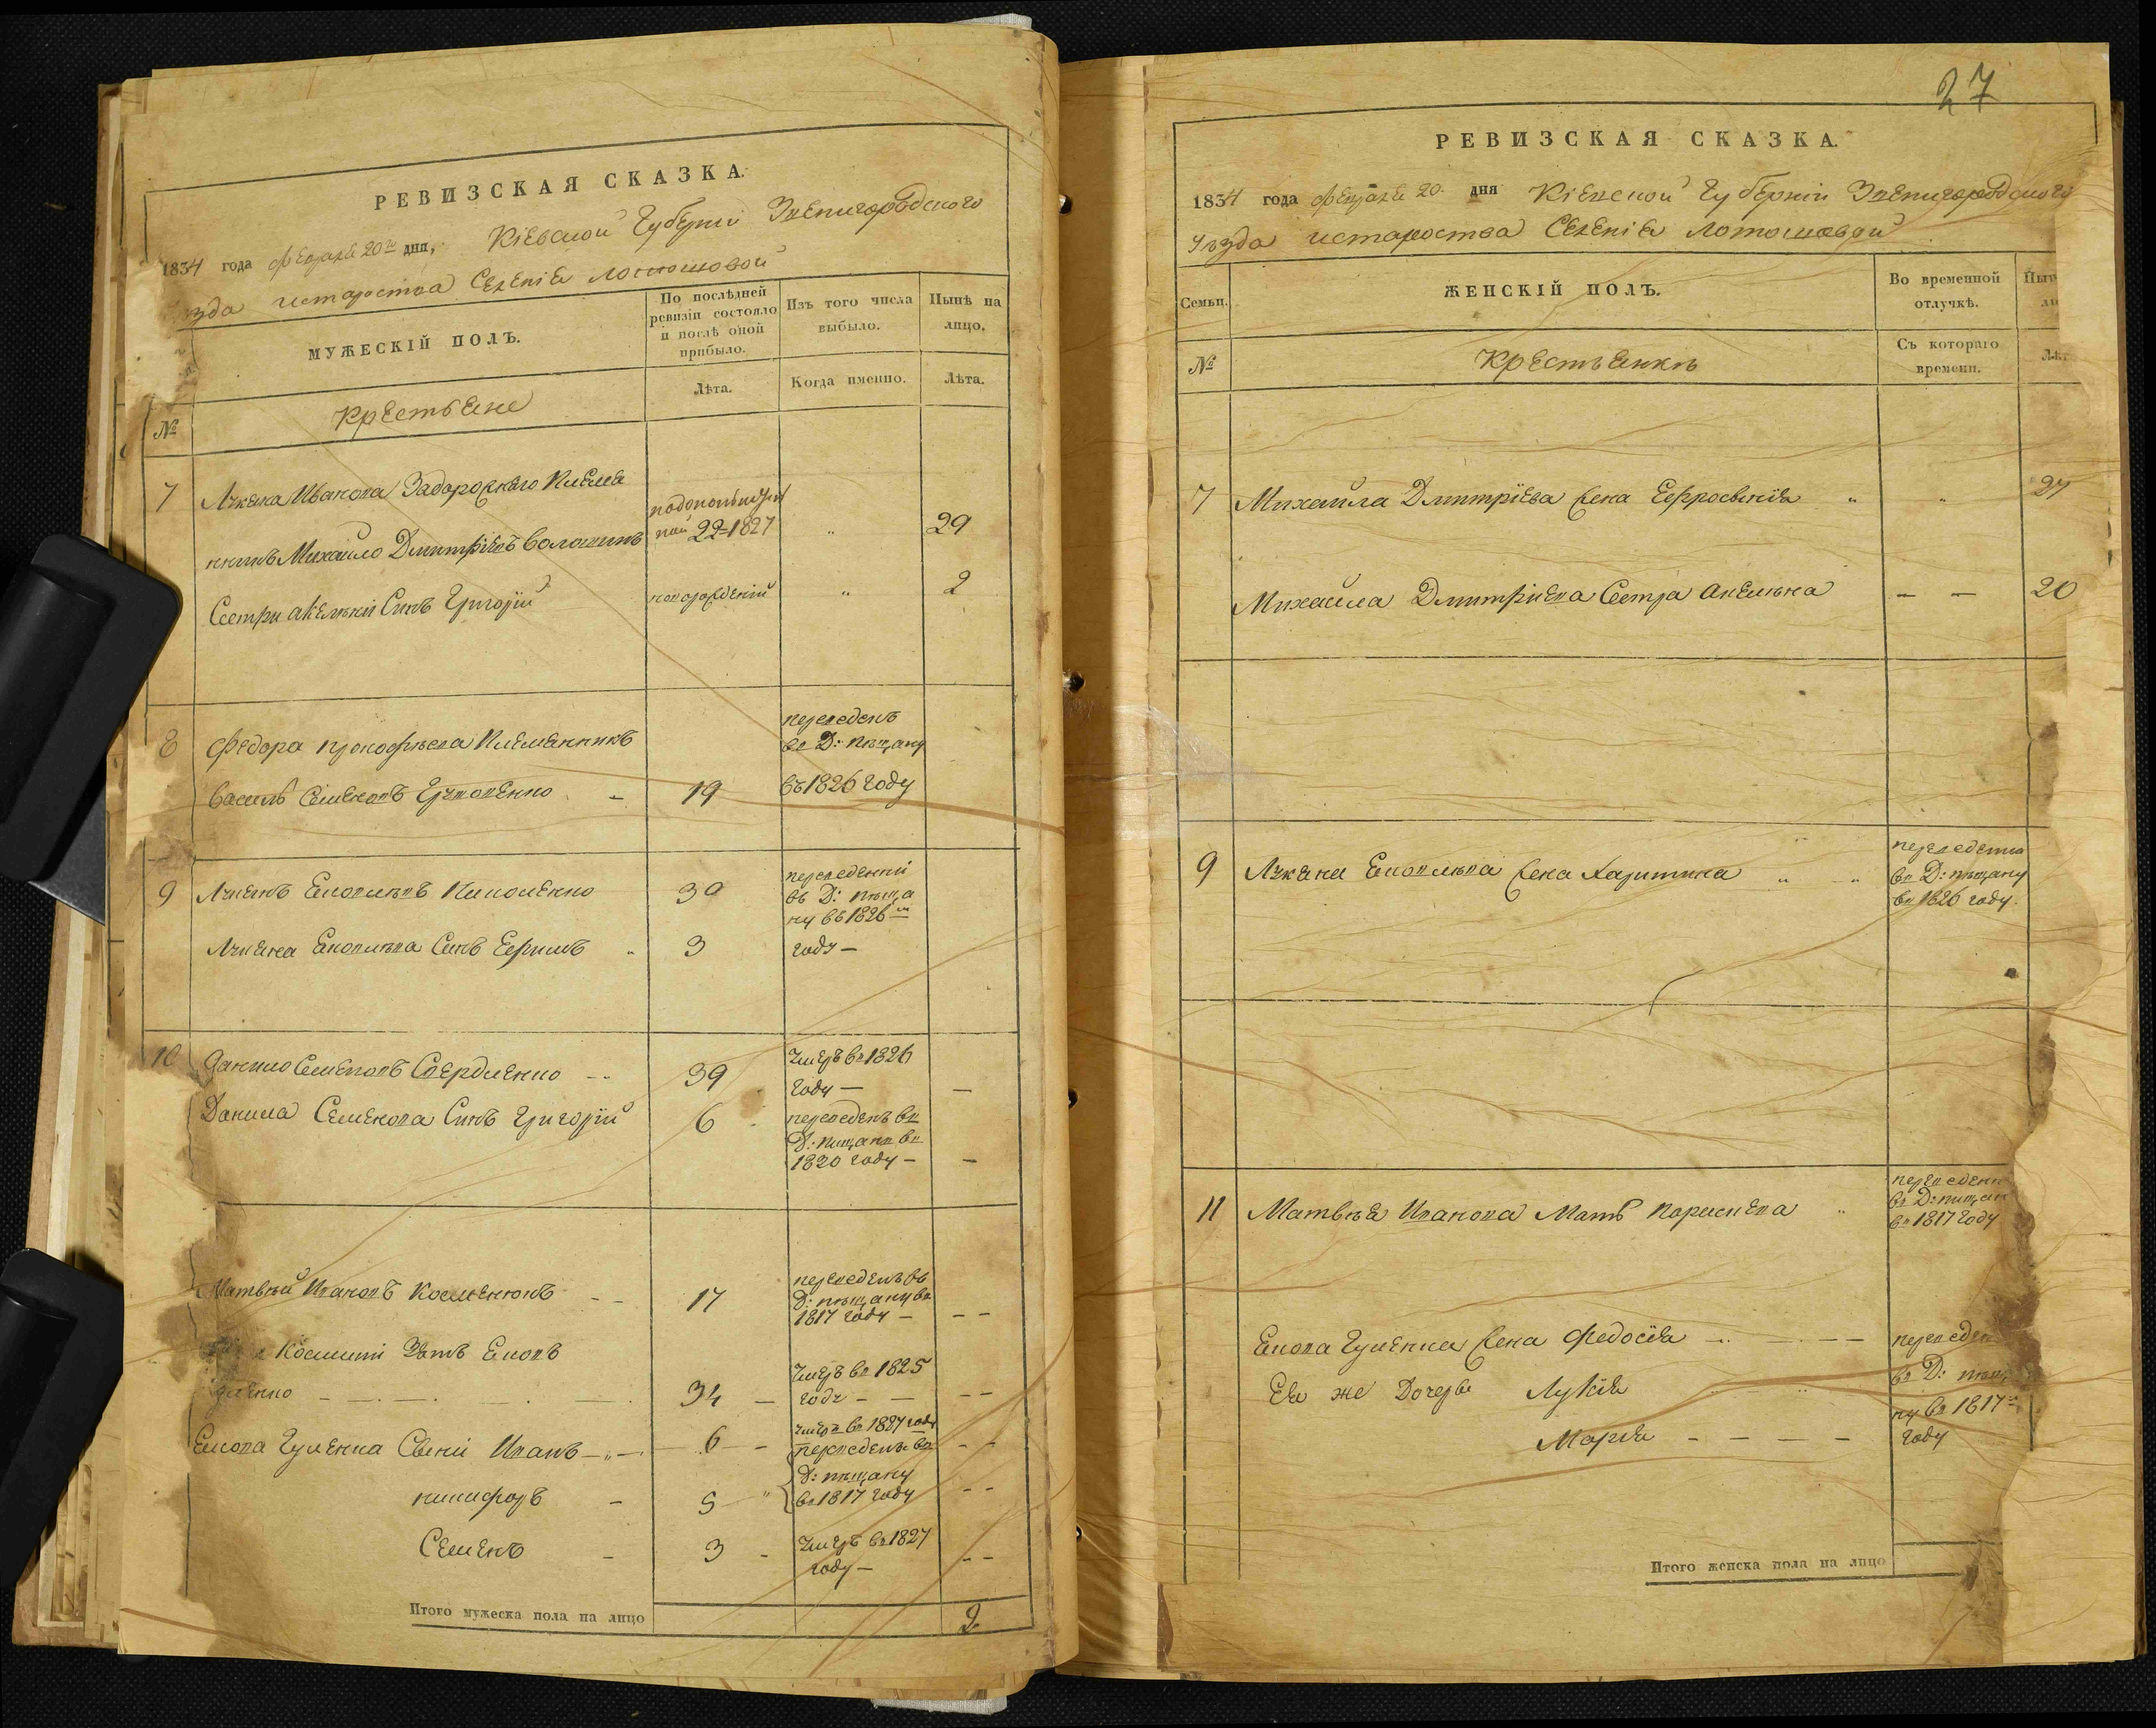 РЕВИЗСКАЯ СКАЗКА.
1834 года Февраля 20го дня, Кіевской Губерніи Звенигородского
уезда истароства Селенія Лотошовой
МУЖЕСКІЙ ПОЛЪ.
По послѣдней
ревизіи состояло
и послѣ оной
прибыло.
Изъ того числа
выбыло.
Нынѣ на
лицо.
№
Крестъяне
Лѣта.
Когда именно.
Лѣта.
7 Лукяна Ивано<wbr>ва Задорожнаго Племя
нникъ Михайло Дмитріевъ Волошинъ
22 - 1827 " 29
Сестри Анельки Синъ Григорій новорожденій " 2
8 Федора Прокофьева Племянникъ
Василь Семеновъ - 19
переведенъ
въ Д: Пѣщану
въ 1826 году
9 Лукянъ Еновлевъ 39
переведенни
въ Д: Пѣща
ну въ 1826м
Лукяна Еновлева Синъ Ефримъ " 3
году -
10 Данило Семеновъ Свердленко 39
Умеръ въ 1826
году - -
Данила Семенова Синъ Григорій 6
переведенъ въ
Д: Пищану въ
1820 году - -
Матвѣй Ивановъ Косменюкъ - - 17
переведенъ въ
Д: Пѣщану въ
1817 году - - -
Космини Зять Еновъ
ленко - 34 -
Умеръ въ 1825
году - - - -
Енова Гуленка Сыни Иванъ - " - 6 -
умеръ въ 1827 году
переведенъ въ - -
Никифоръ - 5 "
Д: Пѣщану
въ 1817 году - -
Семенъ - 3 -
Умеръ въ 1827
году - - -
Итого мужеска пола на лицо 2
27
РЕВИЗСКАЯ СКАЗКА.
1834 года Февраля 20. дня Кіевской Губерніи Звенигородского
Уезда истароства Селенія Лотошовой
Семьи.
ЖЕНСКІЙ ПОЛЪ.
Во временной
отлучкѣ.
№
Крестъянкъ
Съ котораго
времени.
7 Михайла Дмитріева жена Ефросинія " " 27
Михайла Дмитріева Сестра Анелька - - 20
9 Лукяна Еновлева жена Харитина " "
переведенна
въ Д: Пѣщану
въ 1826 году.
11 Матвѣя Иванова Мать "
въ Д: Пищан
въ 1817 году
Енова Гуленка жена Федосія - - -
Ея же Дочеръ Лукія
въ Д:
ну въ 1817м
Марія - - - -
году
Итого женска пола на лицо